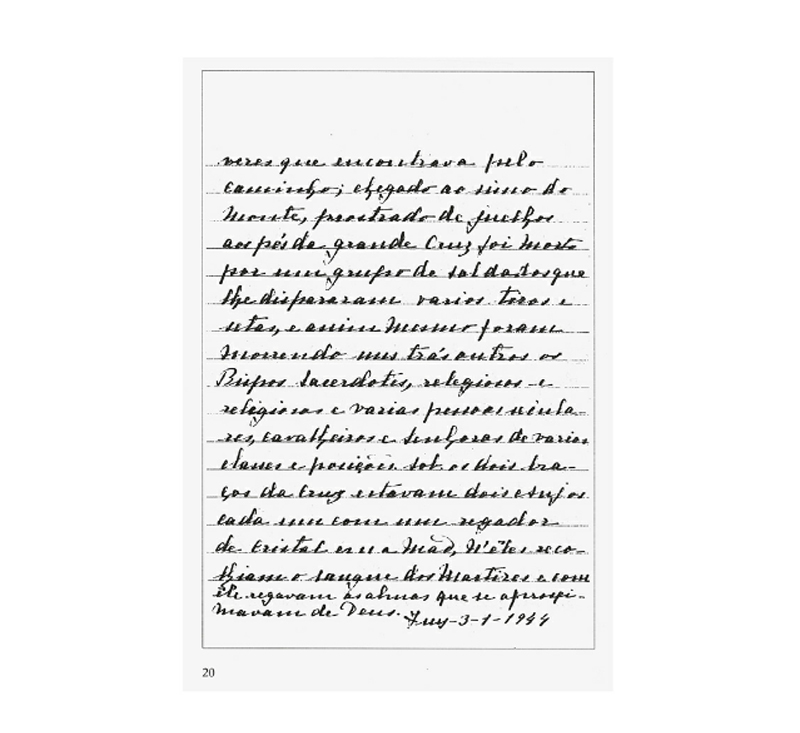 veres que encontrava pelo
caminho; chegado ao simo do
monte, prostrado de juelhos
aos pés da grande Cruz foi morto
por um grupo de soldados que
lhe dispararam varios tiros e
setas, e assim mesmo foram
morrendo uns trás outros os
Bispos Sacerdotes, religiosos e
religiosas e varias pessoas seculа-
res, cavalheiros e senhoras de varias
classes e posições. Sob os dois bra-
ços da Cruz estavam dois Anjos
cada um com um regador
de cristal em a mão, N'êles reco-
lhiam o sangue dos Martires e com
êle regavam as almas que se aproxi-
mavam de Deus. Tuy-3-1-1944
20